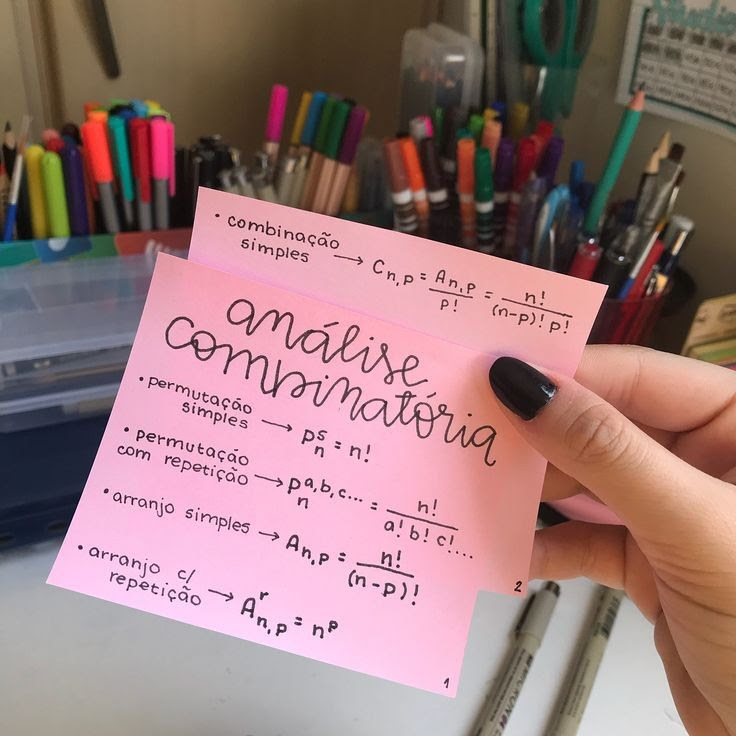 • combinação
simples → Cn,p = An,p/p! = n!/(n-p)! p!
2
análise
combinatória
• permutação
simples → Pn^s = n!
• permutação
com repetição → Pn^a,b,c... = n!/a! b! c!...
• arranjo simples → An,p = n!/(n-p)!
• arranjo c/
repetição → A^r n,p = n^p
1